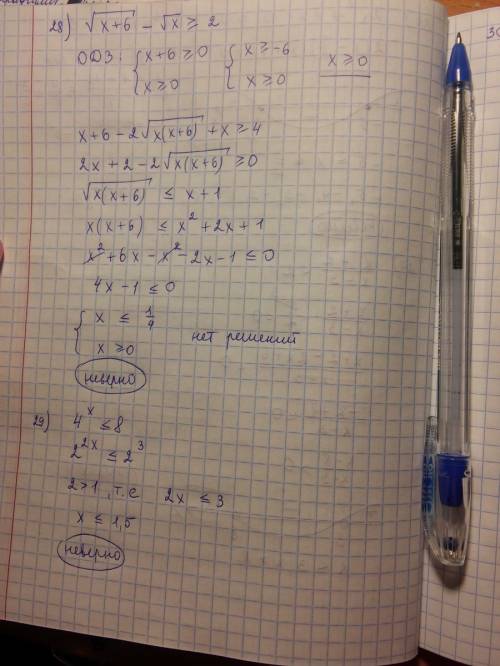 28) √(x+6) - √x ≥ 2
ОДЗ: { x+6 ≥ 0 { x ≥ -6 x ≥ 0
x ≥ 0 x ≥ 0
x+6-2√(x(x+6)) + x ≥ 4
2x+2-2√(x(x+6)) ≥ 0
√(x(x+6)) ≤ x+1
x(x+6) ≤ x² + 2x + 1
x² + 6x - x² - 2x - 1 ≤ 0
4x - 1 ≤ 0
{ x ≤ 1/4
x ≥ 0 нет решений
неверно
29) 4^x ≤ 8
2^(2x) ≤ 2^3
2>1, т.е 2x ≤ 3
x ≤ 1,5
неверно